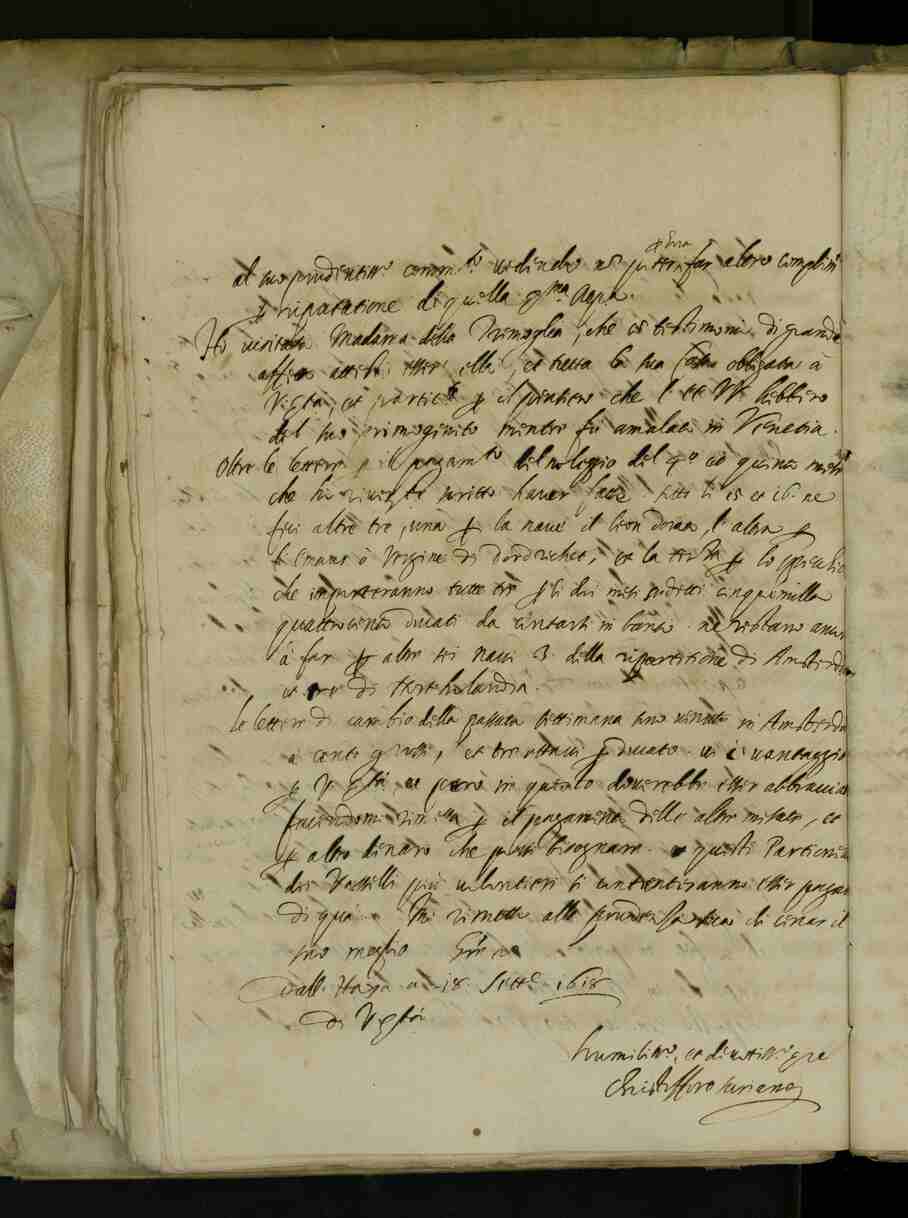 al suo prudentisso comm.to vedendo no potersi per hora far altro complim.to
per riputatione di quella Ser.ma Rep.a.
Ho visitata Madama della Tremoglia, che con testimonij di grand.e
affetto attestò esser ella, et tutta la sua Casa obligata à
V. S.tà, et partic.te per il pensiero che l' EE. VV. hebbero
del suo primogenito mentre fù amalato in Venetia.
Oltre le lettere per il pagam.to del nolegio del 4.o et quinto mese
che hò scritto haver fatte sotto li 15 et 16. ne
feci altre tre, una per la nave il leon dorato, l'altra per
la Vergine di Dordrichet, et la terza per lo
che importeranno tutte tre per li doi mesi sodetti cinquemilla
quattrocento ducati da contarsi in banco. ne restano anco
à far per altre sei navi 3. della ripartitione di Amsterdam
et tre di Northolandia.
Le lettere di cambio della passata settimana sono venute in Amsterdam
à cento grossi, et tre ottavi per ducato. vi è vantaggio
per V. S.tà et però in questo doverebbe esser abbracciato
facendomi rimessa per il pagamento delle altre mesate, et
per altro denaro che possi bisognare. questi Partecip.i
dei Vasselli più volentieri si contenteranno esser pagati
di quà. Mi rimetto alla prudenza sua di ch il
suo meglio. Gratie
Dall' Haya a 18 Sett.e 1618
Di V. S.tà
humiliss.o, et devotiss.o ser.re
Christofforo Suriano